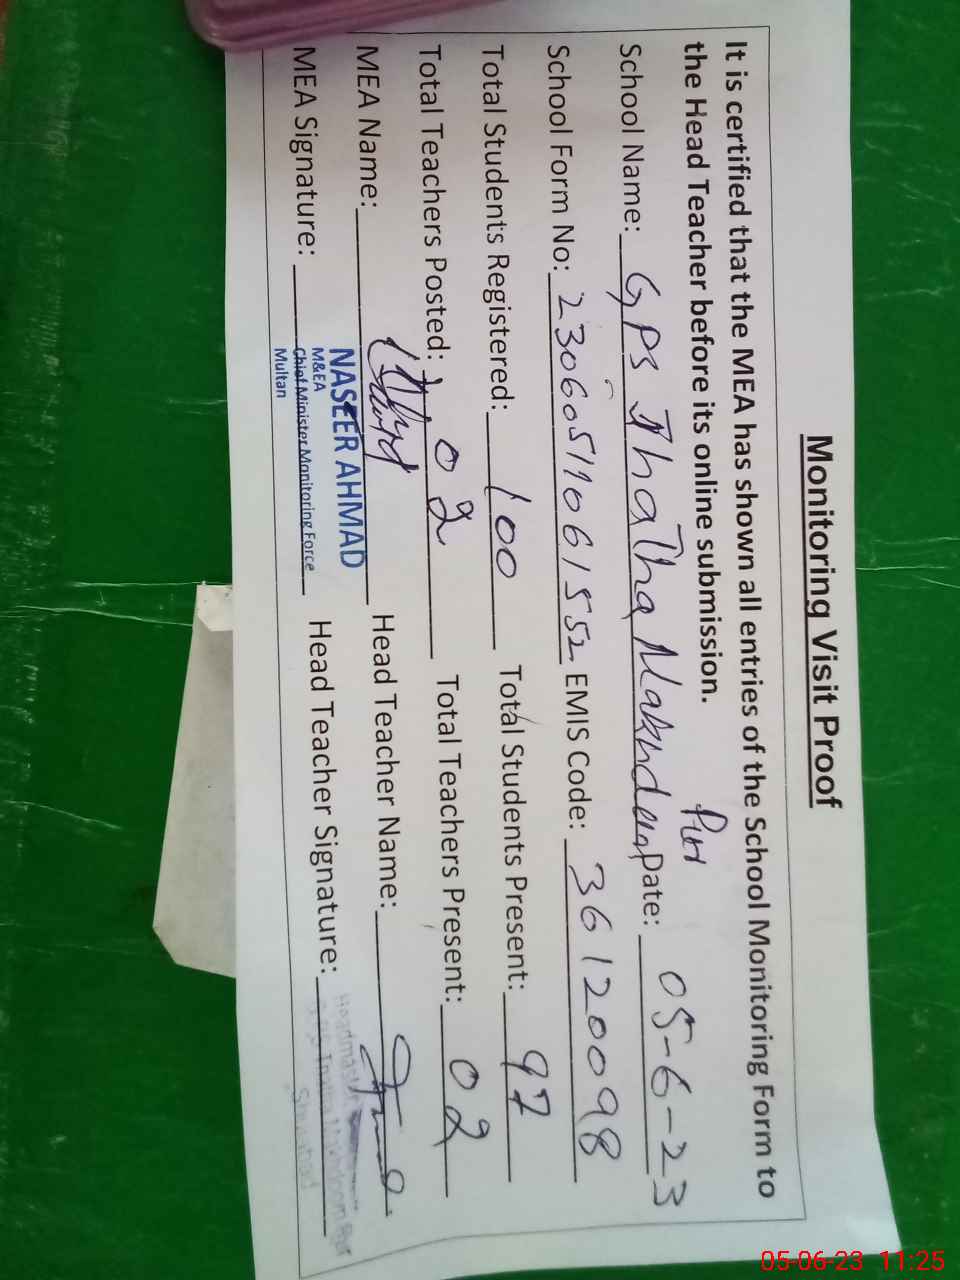 Monitoring Visit Proof
It is certified that the MEA has shown all entries of the School Monitoring Form to
the Head Teacher before its online submission.
School Name: GPS Thatha Makhdum Pur Date: 05-6-23
School Form No: 23060511061552 EMIS Code: 36120098
Total Students Registered: 100 Total Students Present: 97
Total Teachers Posted: 02 Total Teachers Present: 02
MEA Name: Head Teacher Name:
NASEER AHMAD
MEA Signature: Head Teacher Signature:
M&EA
Chief Minister Monitoring Force
Multan
Headmaster
05-06-23 11:25